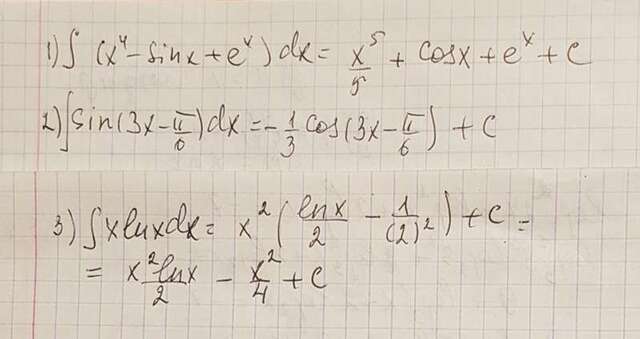 1) ∫ (x⁴ - sinx + eˣ) dx = x⁵/5 + cosx + eˣ + c
2) ∫ sin(3x - π/6) dx = - 1/3 cos(3x - π/6) + c
3) ∫ x lnx dx = x² (lnx/2 - 1/(2)²) + c =
= x² lnx/2 - x²/4 + c